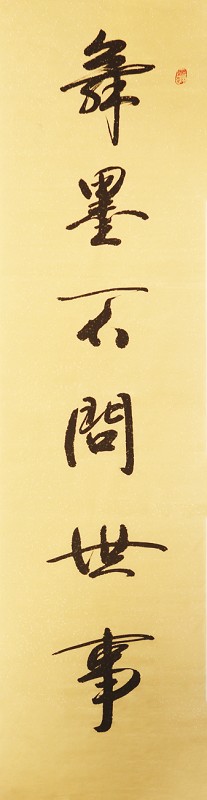 舞墨不問世事